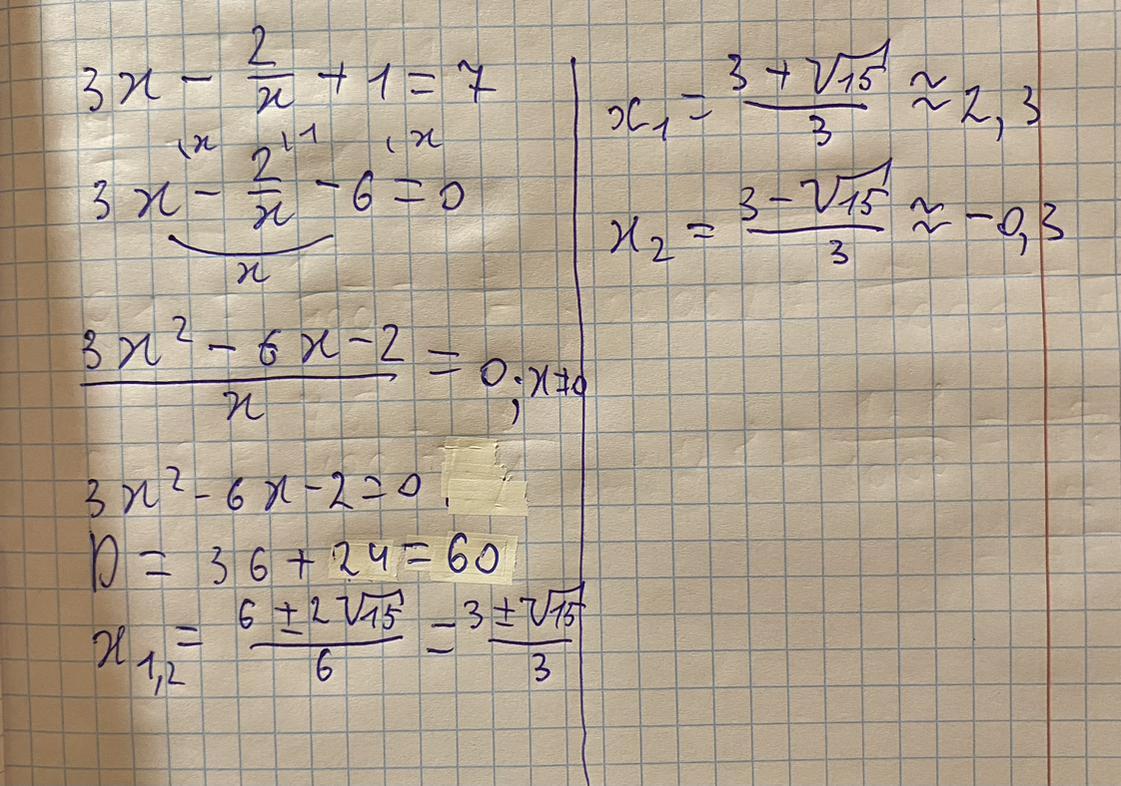 3x - 2/x + 1 = 7
3x^{\x} - 2/x^{\1} - 6^{\x} = 0
x
(3x² - 6x - 2)/x = 0; x≠0
3x² - 6x - 2 = 0
D = 36 + 24 = 60
x₁,₂ = (6 ± 2√15)/6 = (3 ± √15)/3
x₁ = (3 + √15)/3 ≈ 2,3
x₂ = (3 - √15)/3 ≈ -0,3